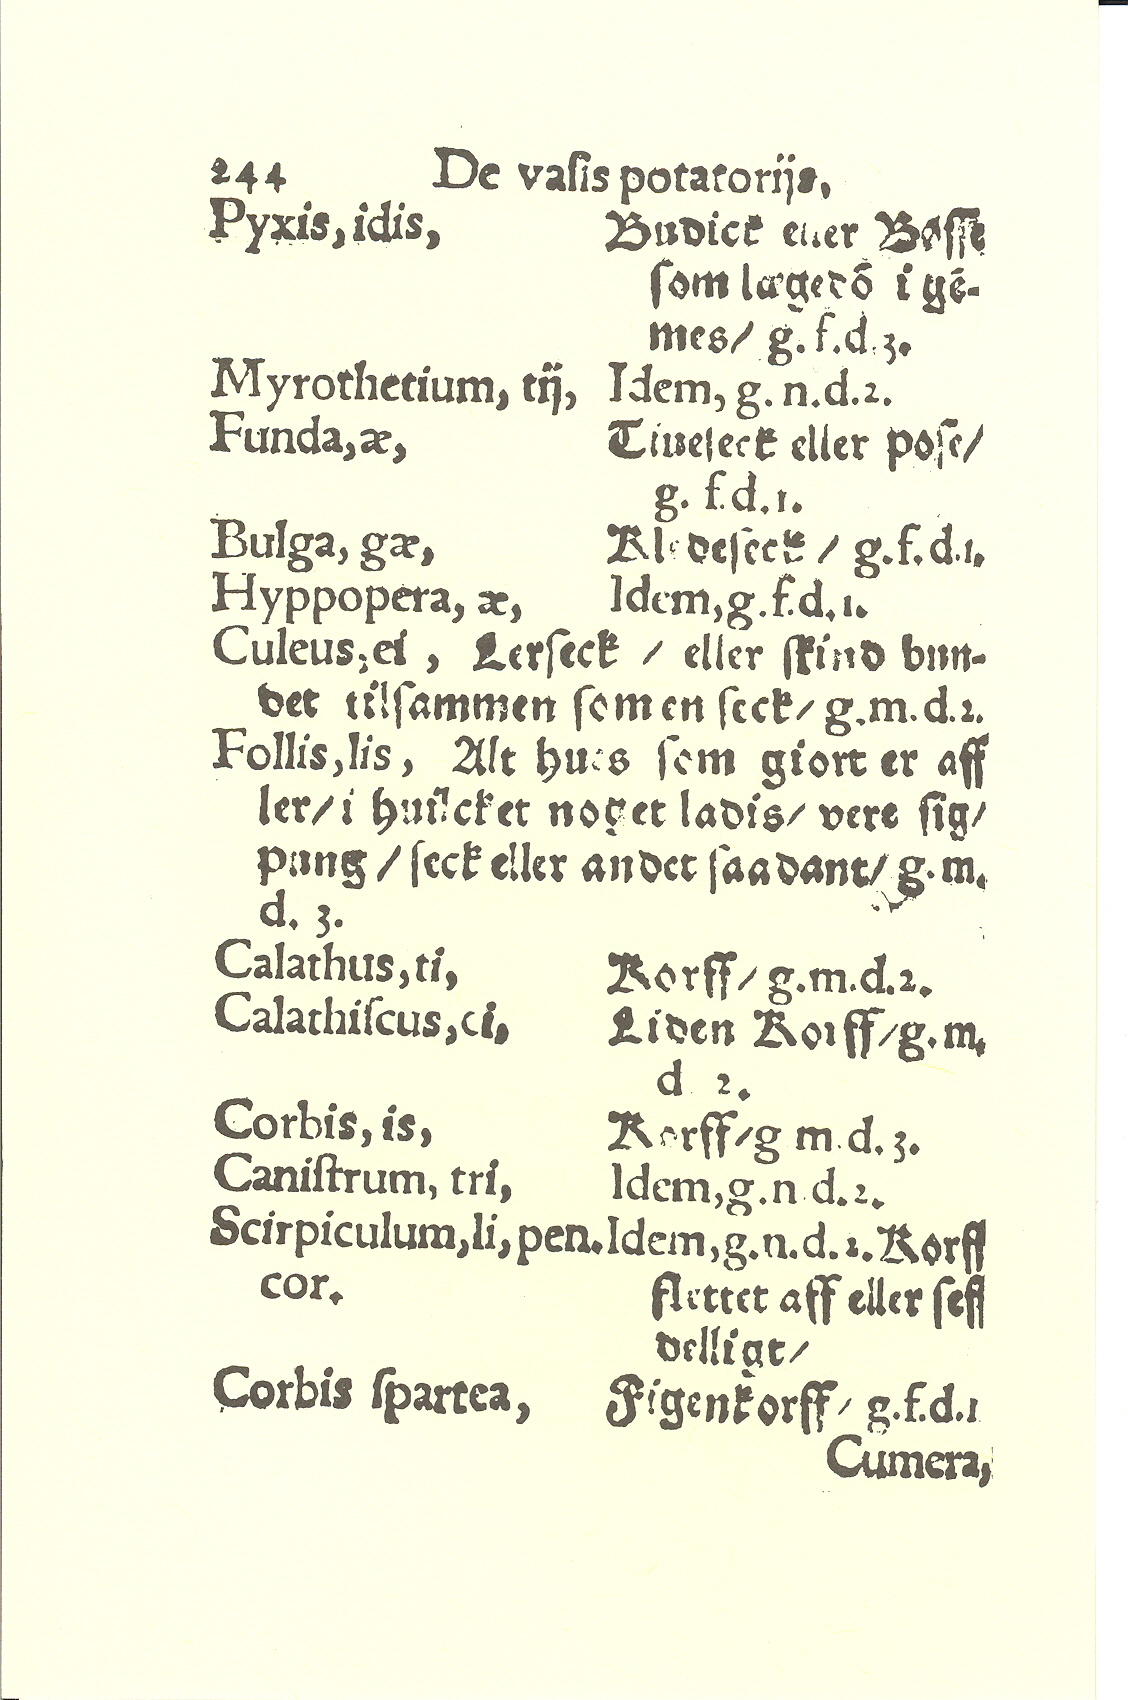 244 De vasis potatorijs,
Pyxis, idis, Budick eller Bøsse
som lægedō i gē-
mes/ g. f. d. 3.
Myrothetium, tij, Idem, g. n. d. 2.
Funda, æ, Tiueseck eller pose/
g. f. d. 1.
Bulga, gæ, Kledeseck / g. f. d. 1.
Hyppopera, æ, Idem, g. f. d. 1.
Culeus, ei, Lerseck / eller skind bun-
det tilsammen som en seck/ g. m. d. 2.
Follis, lis, Alt hues som giort er aff
ler/ i huilcket noget ladis/ vere sig/
pung / seck eller andet saadant/ g. m.
d. 3.
Calathus, ti, Korff/ g. m. d. 2.
Calathiscus, ci, Liden Korff/ g. m.
d 2.
Corbis, is, Korff/ g m. d. 3.
Canistrum, tri, Idem, g. n. d. 2.
Scirpiculum, li, pen. Idem, g. n. d. 2. Korff
cor. flettet aff eller seff
delligt/
Corbis spartea, Figenkorff/ g. f. d. 1
Cumera,